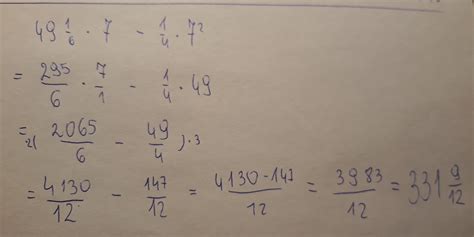 49 1/6 · 7 - 1/4 · 7²
= 295/6 · 7/1 - 1/4 · 49
= 2( 2065/6 - 49/4 ) · 3
= 4130/12 - 147/12 = 4130-147/12 = 3983/12 = 331 9/12